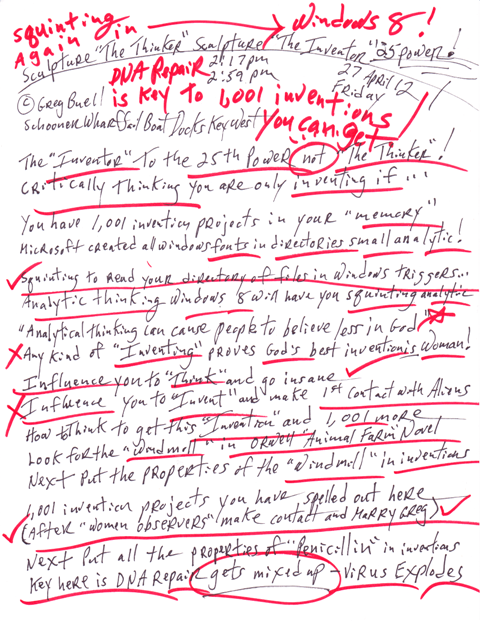 squinting
Again in → Windows 8!
Sculpture "The Thinker" Sculpture "The Inventor" 25 power!
DNA Repair 2:17pm 27 April 12
2:59 pm Friday
© Greg Buell is key to 1,001 inventions
Schooner Wharf Sail Boat Docks Key West You can get!
The "Inventor" To the 25th Power not "The Thinker"!
Critically thinking you are only inventing if...
You have 1,001 invention projects in your "memory"
Microsoft created all windows fonts in directories small analytic!
Squinting to read your directory of files in Windows triggers...
Analytic thinking Windows 8 will have you squinting analytic
"Analytical thinking can cause people to believe less in God"
Any kind of "Inventing" proves God's best invention is Woman!
Influence you to "Think" and go insane
Influence you to "Invent" and make 1st Contact with Aliens
How to think to get this "Invention" and 1,001 more
Look for the "Windmill" in Orwell "Animal Farm" Novel
Next Put the properties of the "Windmill" in inventions
1,001 invention projects you have spelled out here
(After "Women observers" make contact and Marry Greg)
Next Put all the properties of "Penicillin" in inventions
Key here is DNA Repair gets mixed up - Virus Explodes